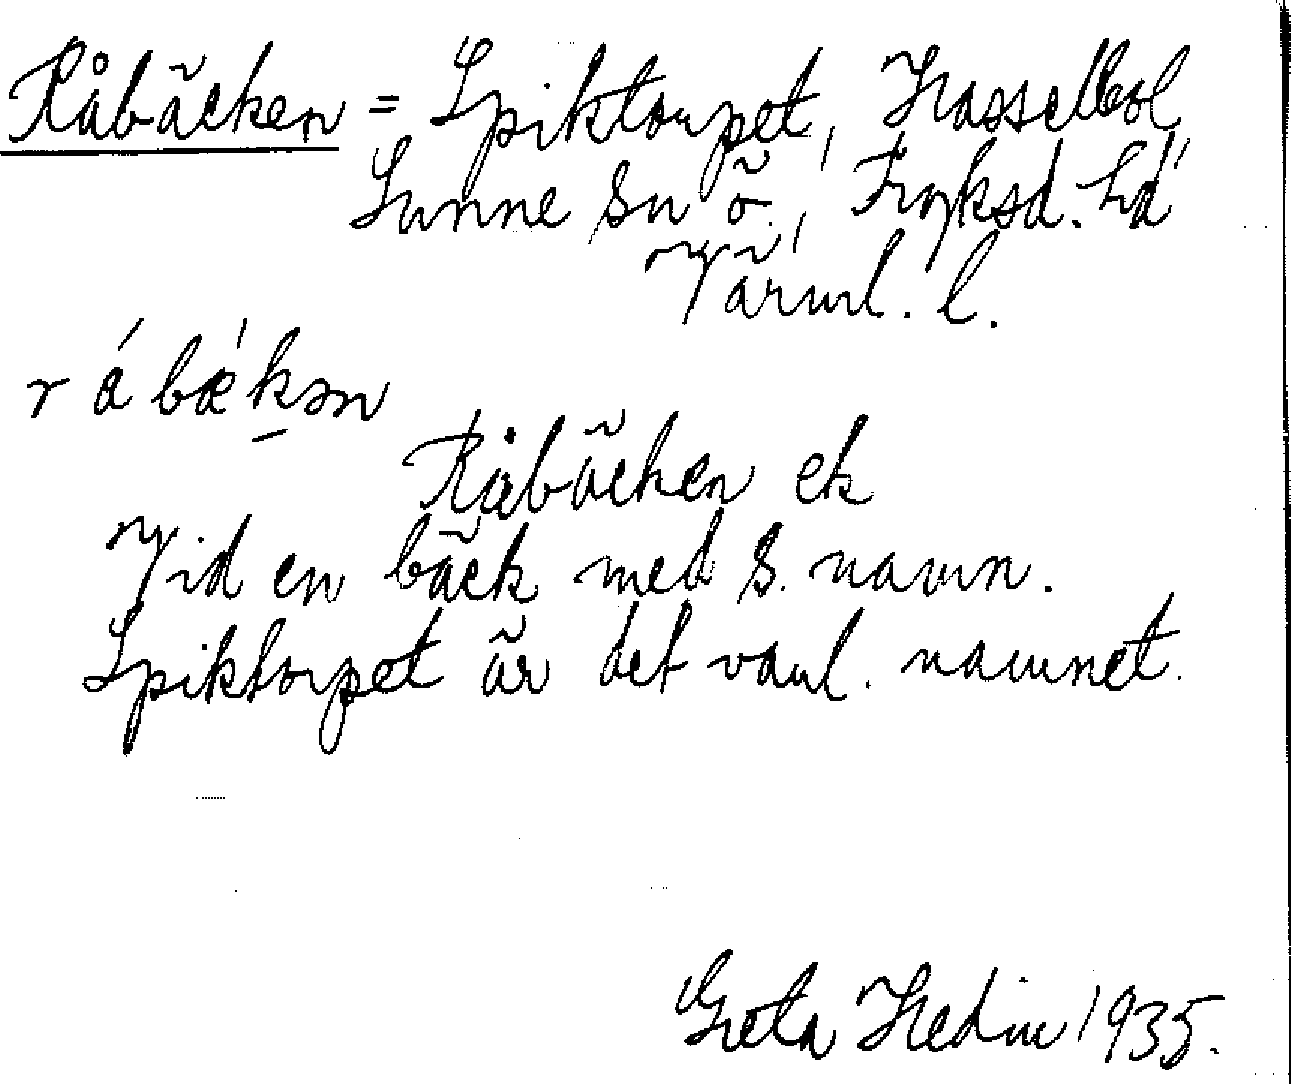 Råbäcken = Spiktorpet, Hasselbol,
Sunne sn ö., Fryksd. hd
Värml. l.
r á bǽkən
Råbäcken ek
Vid en bäck med s. namn.
Spiktorpet är det vanl. namnet.
Greta Hedin 1935.